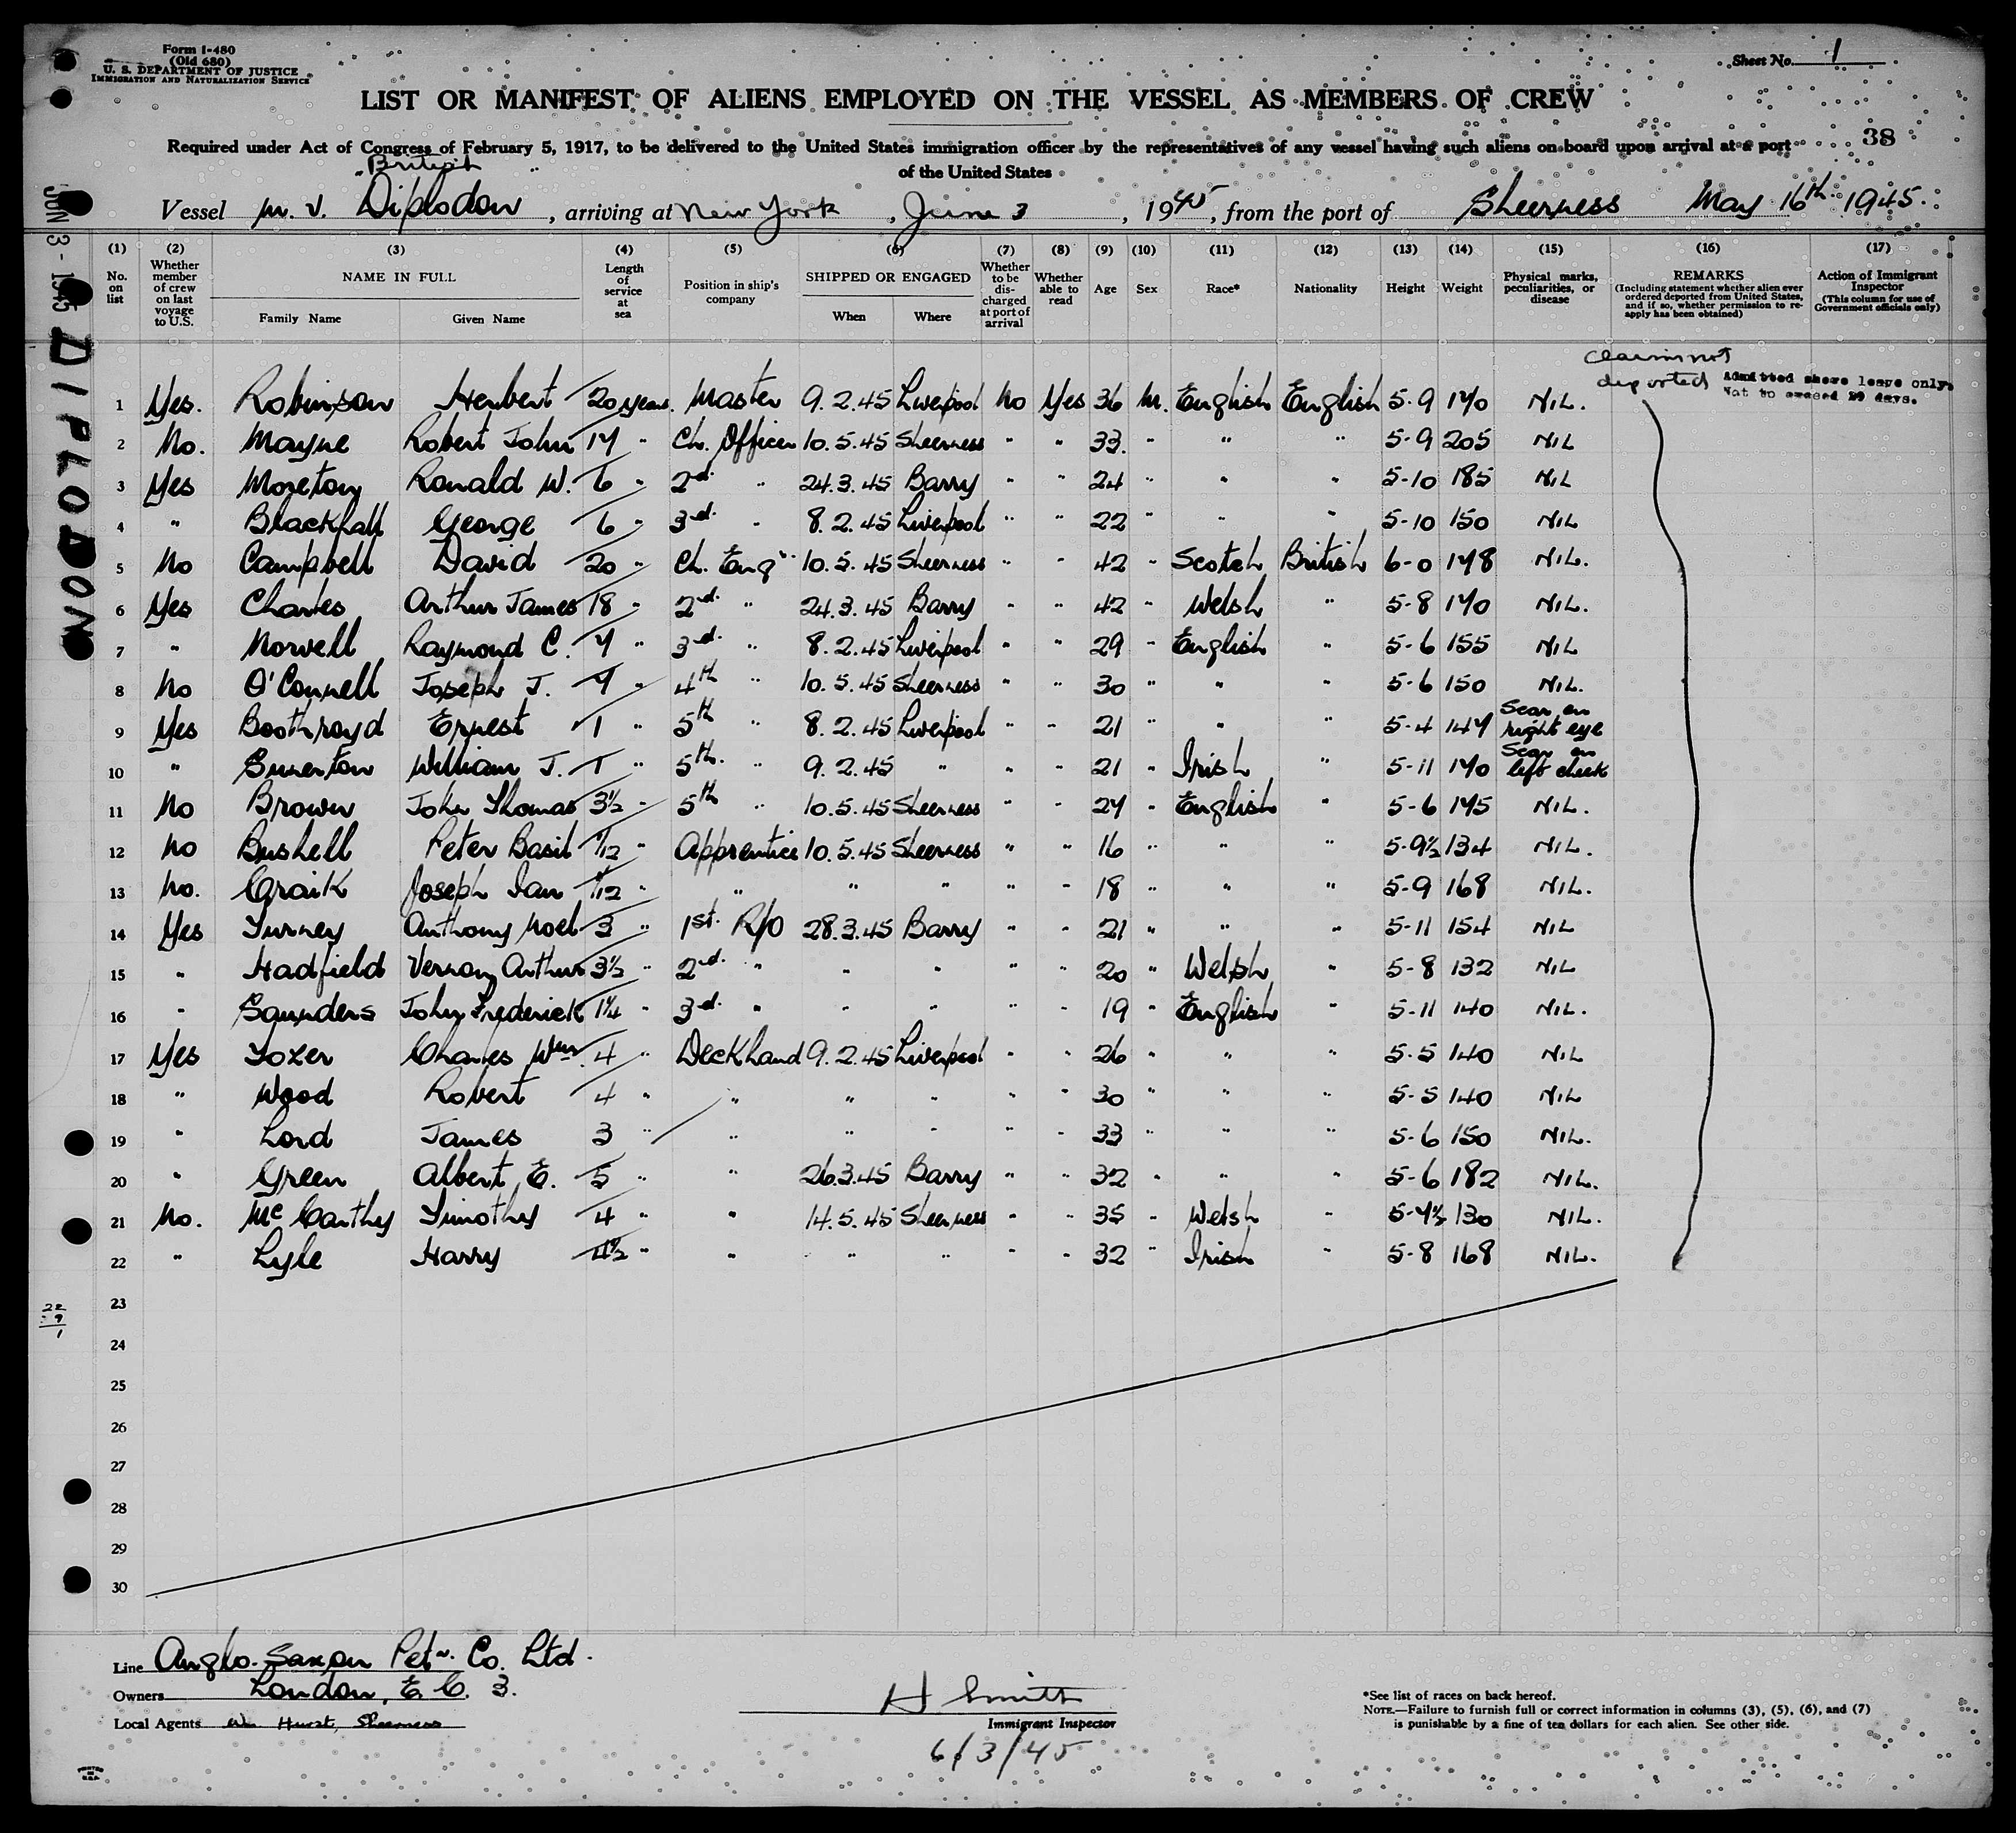 Form I-480
(Old 680)
U. S. DEPARTMENT OF JUSTICE
IMMIGRATION AND NATURALIZATION SERVICE
Sheet No. 1
LIST OR MANIFEST OF ALIENS EMPLOYED ON THE VESSEL AS MEMBERS OF CREW
38
Required under Act of Congress of February 5, 1917, to be delivered to the United States immigration officer by the representatives of any vessel having such aliens on board upon arrival at a port
of the United States
British
Vessel M. V. Diplodon, arriving at New York, June 3, 1945, from the port of Sheerness May 16th 1945.
JUN 3 - 1945 DIPLODON
(1) (2) (3) (4) (5) (6) (7) (8) (9) (10) (11) (12) (13) (14) (15) (16) (17)
No. on list
Whether member of crew on last voyage to U.S.
NAME IN FULL
Family Name Given Name
Length of service at sea
Position in ship's company
SHIPPED OR ENGAGED
When Where
Whether to be discharged at port of arrival
Whether able to read
Age
Sex
Race*
Nationality
Height
Weight
Physical marks, peculiarities, or disease
REMARKS
(Including statement whether alien ever ordered deported from United States, and if so, whether permission to reapply has been obtained)
Action of Immigrant Inspector
(This column for use of Government officials only)
Claim not
deported
Admitted shore leave only.
Not to exceed 29 days.
1 Yes. Robinson Herbert 20 years. Master 9.2.45 Liverpool No Yes 36 M. English English 5-9 170 NIL.
2 No. Mayne Robert John 17 " Ch. Officer 10.5.45 Sheerness " " 33. " " " 5-9 205 NIL
3 Yes Moreton Ronald W. 6 " 2nd. " 24.3.45 Barry " " 24 " " " 5-10 185 NIL
4 " Blackhall George 6 " 3rd. " 8.2.45 Liverpool " " 22 " " " 5-10 150 NIL
5 No Campbell David 20 " Ch. Eng'r 10.5.45 Sheerness " " 42 " Scotch British 6-0 178 NIL.
6 Yes Charles Arthur James 18 " 2nd. " 24.3.45 Barry " " 42 " Welsh " 5-8 170 NIL.
7 " Norvell Raymond C. 7 " 3rd. " 8.2.45 Liverpool " " 29 " English " 5-6 155 NIL
8 No O'Connell Joseph J. 7 " 4th " 10.5.45 Sheerness " " 30 " " " 5-6 150 NIL.
9 Yes Boothroyd Ernest 1 " 5th " 8.2.45 Liverpool " " 21 " " " 5-4 147 Scar on right eye
10 " William J. 1 " 5th. " 9.2.45 " " " 21 " Irish " 5-11 170 Scar on left cheek
11 No Brown John Thomas 3½ " 5th " 10.5.45 Sheerness " " 27 " English " 5-6 175 NIL.
12 No Bushell Peter Basil 1/12 " Apprentice 10.5.45 Sheerness " " 16 " " " 5-9½ 134 NIL.
13 No. Craik Joseph Ian 1/12 " " " " " " 18 " " " 5-9 168 NIL.
14 Yes Turney Anthony Noel 3 " 1st. R/O 28.3.45 Barry " " 21 " " " 5-11 154 NIL
15 " Hadfield Vernon Arthur 3½ " 2nd. " " " " " 20 " Welsh " 5-8 132 NIL
16 " Saunders John Frederick 1¼ " 3rd. " " " " " 19 " English " 5-11 140 NIL.
17 Yes Tozer Charles Wm. 4 " Deck hand 9.2.45 Liverpool " " 26 " " " 5-5 140 NIL
18 " Wood Robert 4 " " " " " " 30 " " " 5-5 140 NIL
19 " Lord James 3 " " " " " " 33 " " " 5-6 150 NIL.
20 " Green Albert E. 5 " " 26.3.45 Barry " " 32 " " " 5-6 182 NIL.
21 No. McCarthy Timothy 4 " " 14.5.45 Sheerness " " 35 " Welsh " 5-7½ 130 NIL.
22 " Lyle Harry 4½ " " " " " " 32 " Irish " 5-8 168 NIL.
23
24
25
26
27
28
29
30
Line Anglo-Saxon Petm. Co. Ltd.
Owners London, E.C. 3.
Local Agents Wm Hurst, Sheerness
H Smith
Immigrant Inspector
6/3/45
*See list of races on back hereof.
NOTE.—Failure to furnish full or correct information in columns (3), (5), (6), and (7)
is punishable by a fine of ten dollars for each alien. See other side.
PRINTED IN U.S.A.